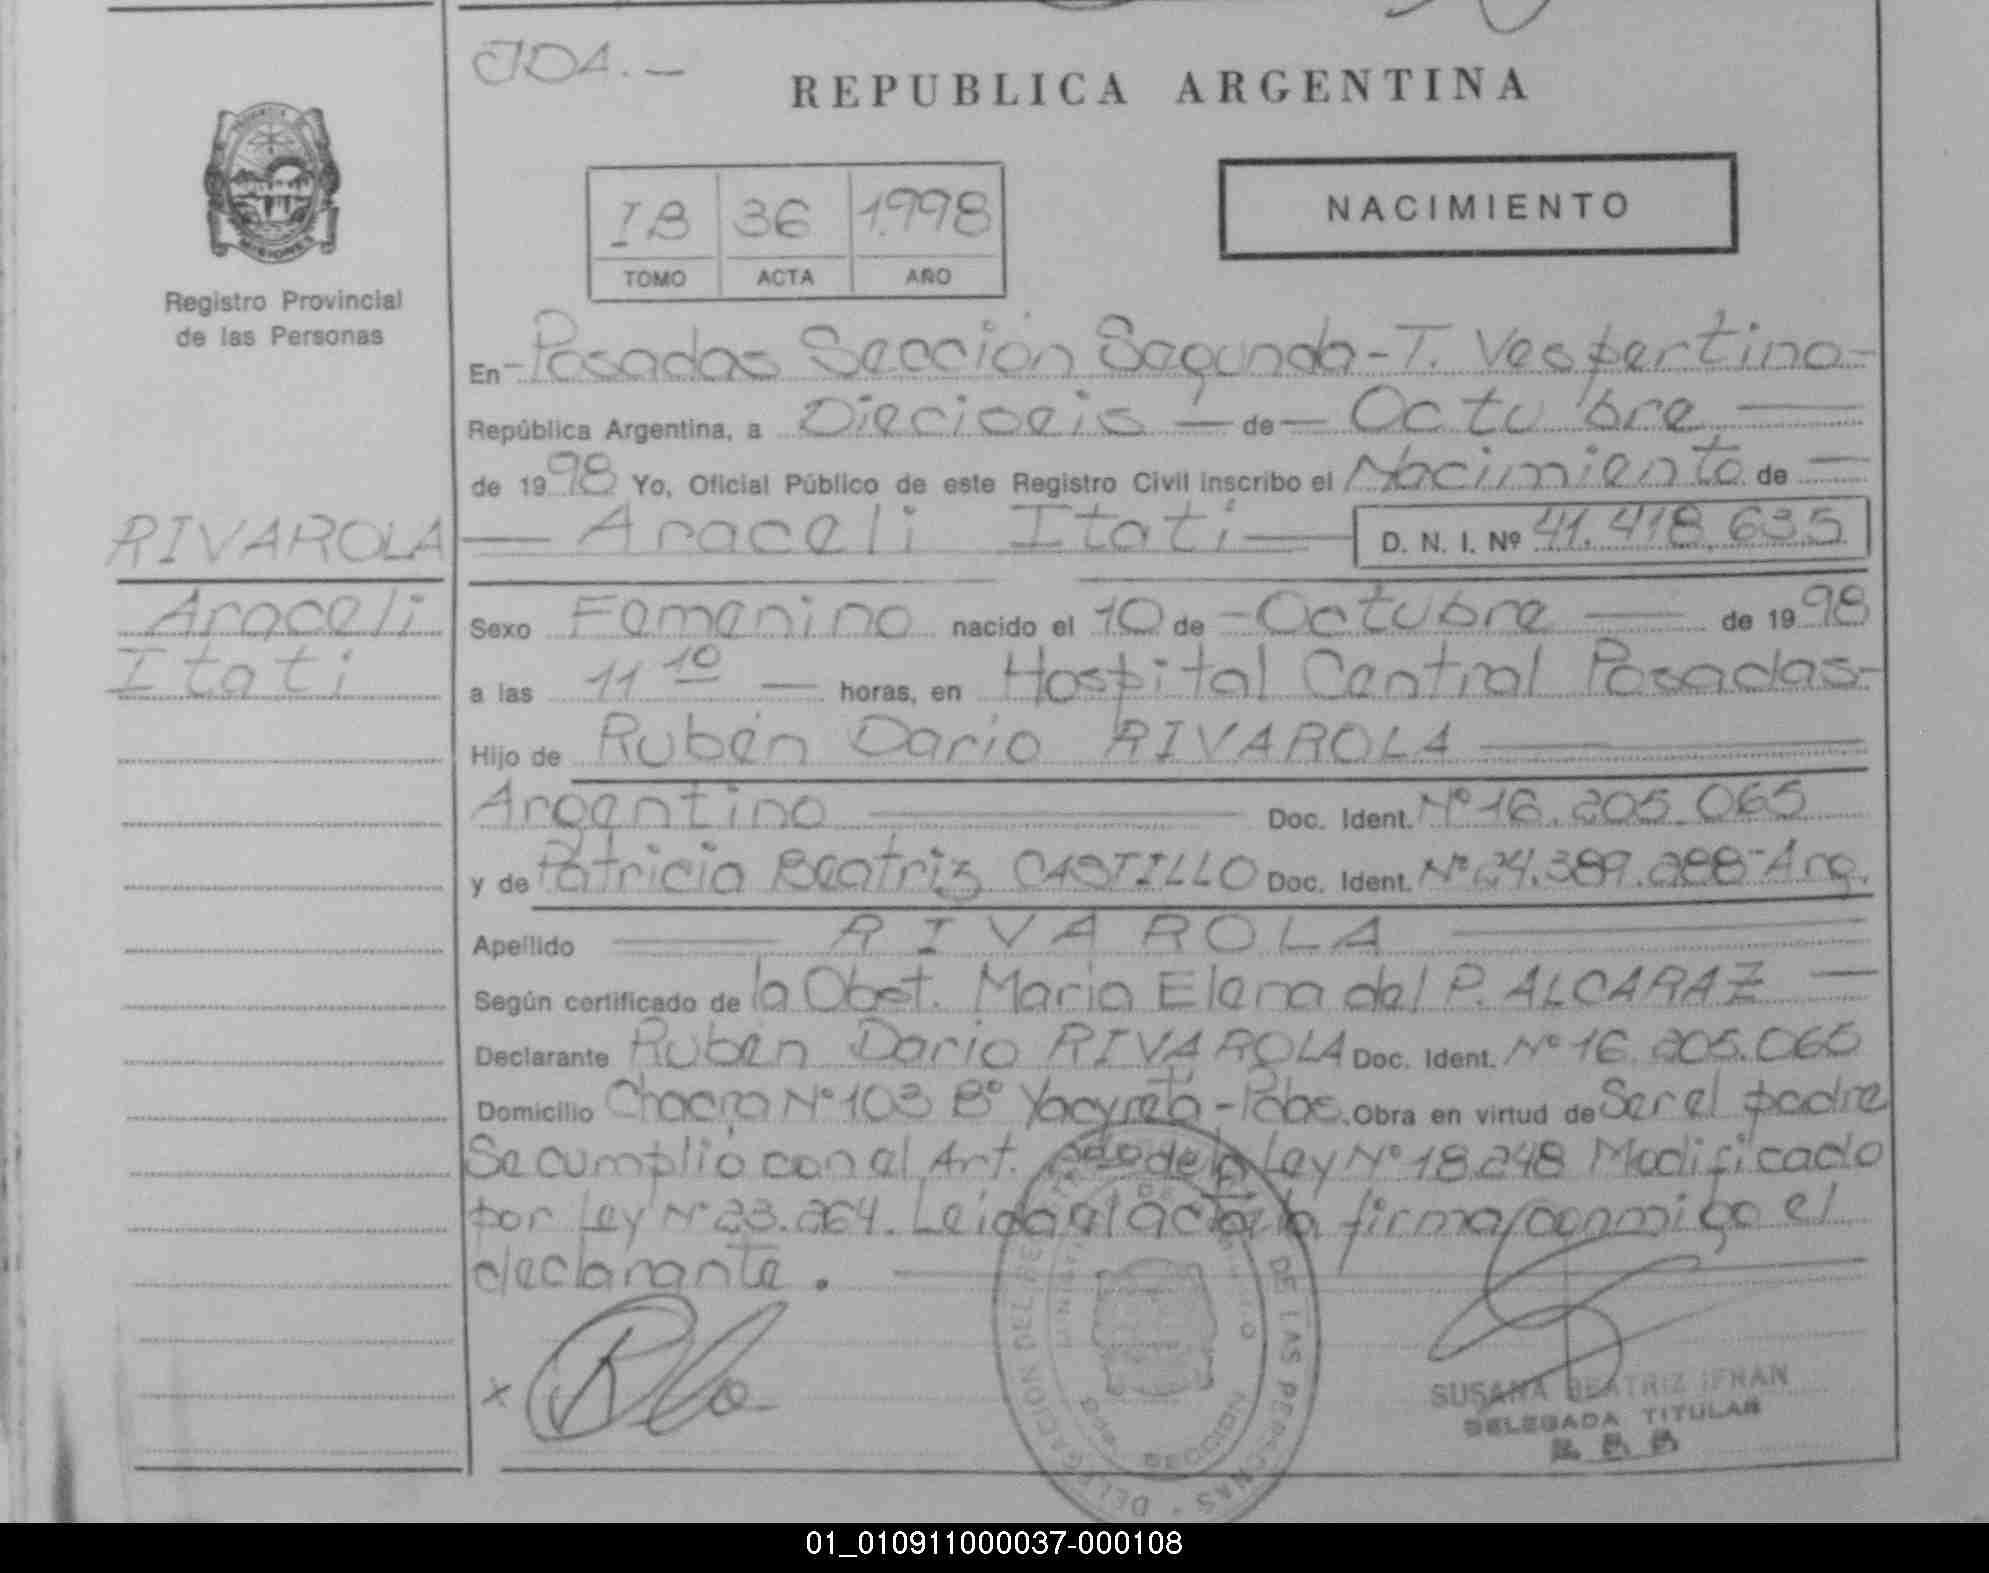 CJDA.-
REPUBLICA ARGENTINA
IB 36 1.998
TOMO ACTA AÑO
NACIMIENTO
Registro Provincial
de las Personas
En - Posadas Sección Segunda - T. Vespertino -
República Argentina, a Dieciseis - de - Octubre
de 1998 Yo, Oficial Público de este Registro Civil inscribo el Nacimiento de
RIVAROLA
Araceli Itati D. N. I. Nº 41.418.635
Araceli
Itati
Sexo Femenino nacido el 10 de - Octubre de 1998
a las 11 10 horas, en Hospital Central Posadas -
Hijo de Rubén Dario RIVAROLA
Argentino Doc. Ident. Nº 16.205.065
y de Patricia Beatriz CASTILLO Doc. Ident. Nº 24.389.288 - Arg.
Apellido RIVAROLA
Según certificado de la Obst. Maria Elena del P. ALCARAZ
Declarante Rubén Dario RIVAROLA Doc. Ident. Nº 16.205.065
Domicilio Chacra Nº 103 Bº Yacyretá - Pdas. Obra en virtud de Ser el padre
Se cumplió con el Art. 2do de la Ley Nº 18.248 Modificado
por Ley Nº 23.264. Leida el acta la firma conmigo el
declarante.
x
DELEGACION DEL REGISTRO DE LAS PERSONAS
SECCION
SUSANA BEATRIZ IFRAN
DELEGADA TITULAR
01_010911000037-000108